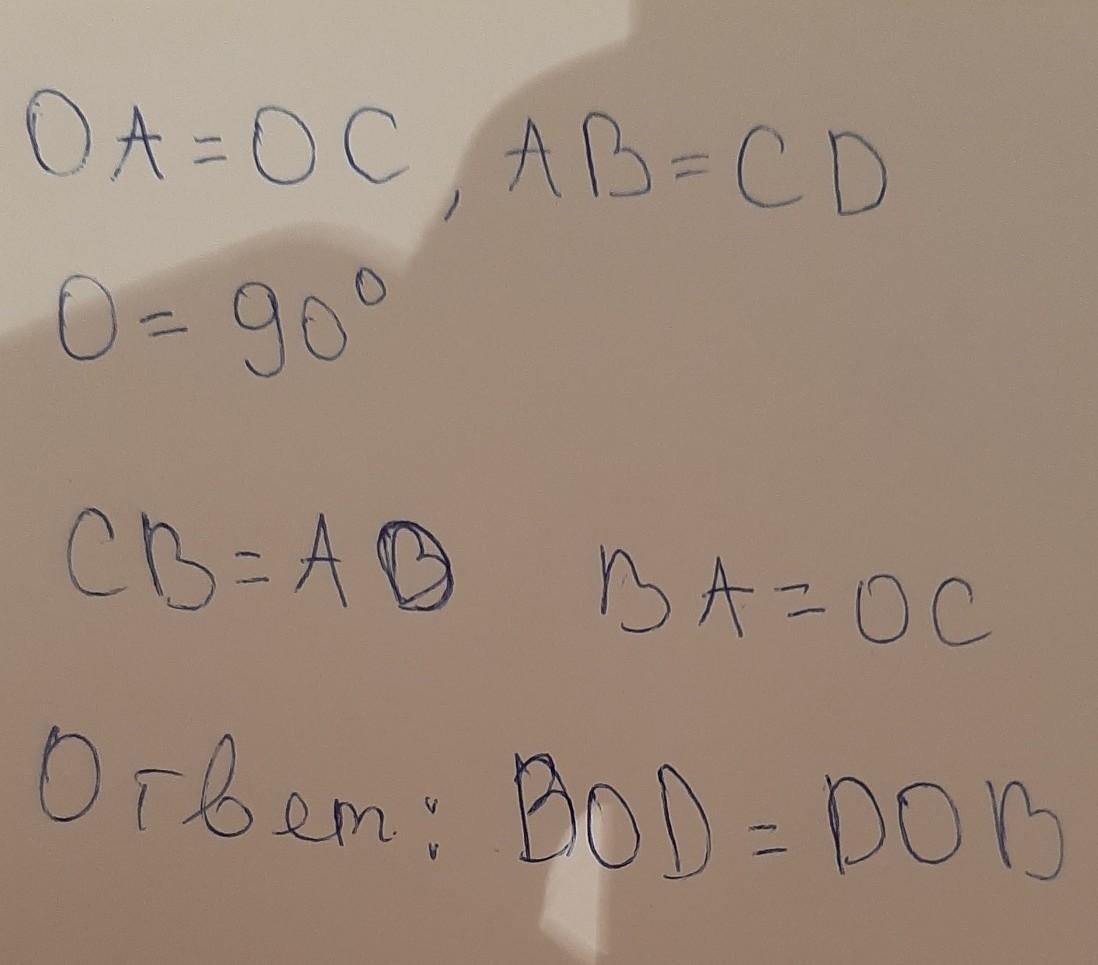 OA = OC, AB = CD
O = 90°
CB = AB BA = OC
Ответ: BOD = DOB